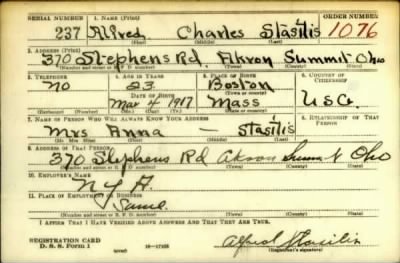 SERIAL NUMBER 1. NAME (Print) ORDER NUMBER
237 Alfred Charles Stasilis 1076
(First) (Middle) (Last)
2. ADDRESS (Print)
370 Stephens Rd. Akron Summit Ohio
(Number and street or R. F. D. number) (Town) (County) (State)
3. TELEPHONE 4. AGE IN YEARS 5. PLACE OF BIRTH 6. COUNTRY OF CITIZENSHIP
NO 23 Boston
DATE OF BIRTH (Town or county)
Mar 4 1917 Mass U.S.A.
(Exchange) (Number) (Mo.) (Day) (Yr.) (State or country)
7. NAME OF PERSON WHO WILL ALWAYS KNOW YOUR ADDRESS 8. RELATIONSHIP OF THAT PERSON
Mrs Anna — Stasilis
(Mr., Mrs., Miss) (First) (Middle) (Last)
9. ADDRESS OF THAT PERSON
370 Stephens Rd Akron Summit Ohio
(Number and street or R. F. D. number) (Town) (County) (State)
10. EMPLOYER'S NAME
N Y A.
11. PLACE OF EMPLOYMENT OR BUSINESS
Same.
(Number and street or R. F. D. number) (Town) (County) (State)
I AFFIRM THAT I HAVE VERIFIED ABOVE ANSWERS AND THAT THEY ARE TRUE.
REGISTRATION CARD
D. S. S. Form 1 16—17105 Alfred Stasilis
(Registrant's signature)